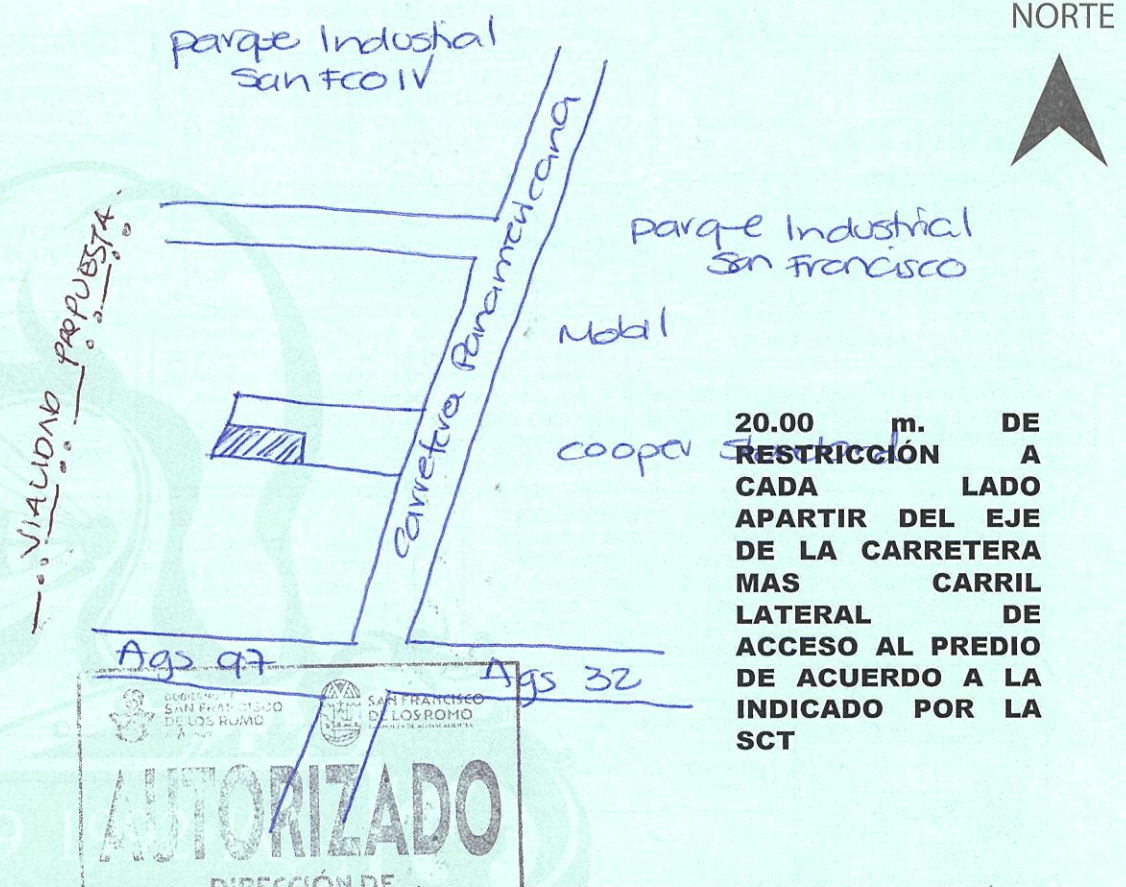 NORTE
parque Industrial
San FCO IV
Carretera Panamericana
parque Industrial
San Francisco
VIALIDAD PROPUESTA
Mobil
cooper Standard
20.00 m. DE
RESTRICCIÓN A
CADA LADO
APARTIR DEL EJE
DE LA CARRETERA
MAS CARRIL
LATERAL DE
ACCESO AL PREDIO
DE ACUERDO A LA
INDICADO POR LA
SCT
Ags 97
Ags 32
SAN FRANCISCO
DE LOS ROMO
SAN FRANCISCO
DE LOS ROMO
AUTORIZADO
DIRECCIÓN DE